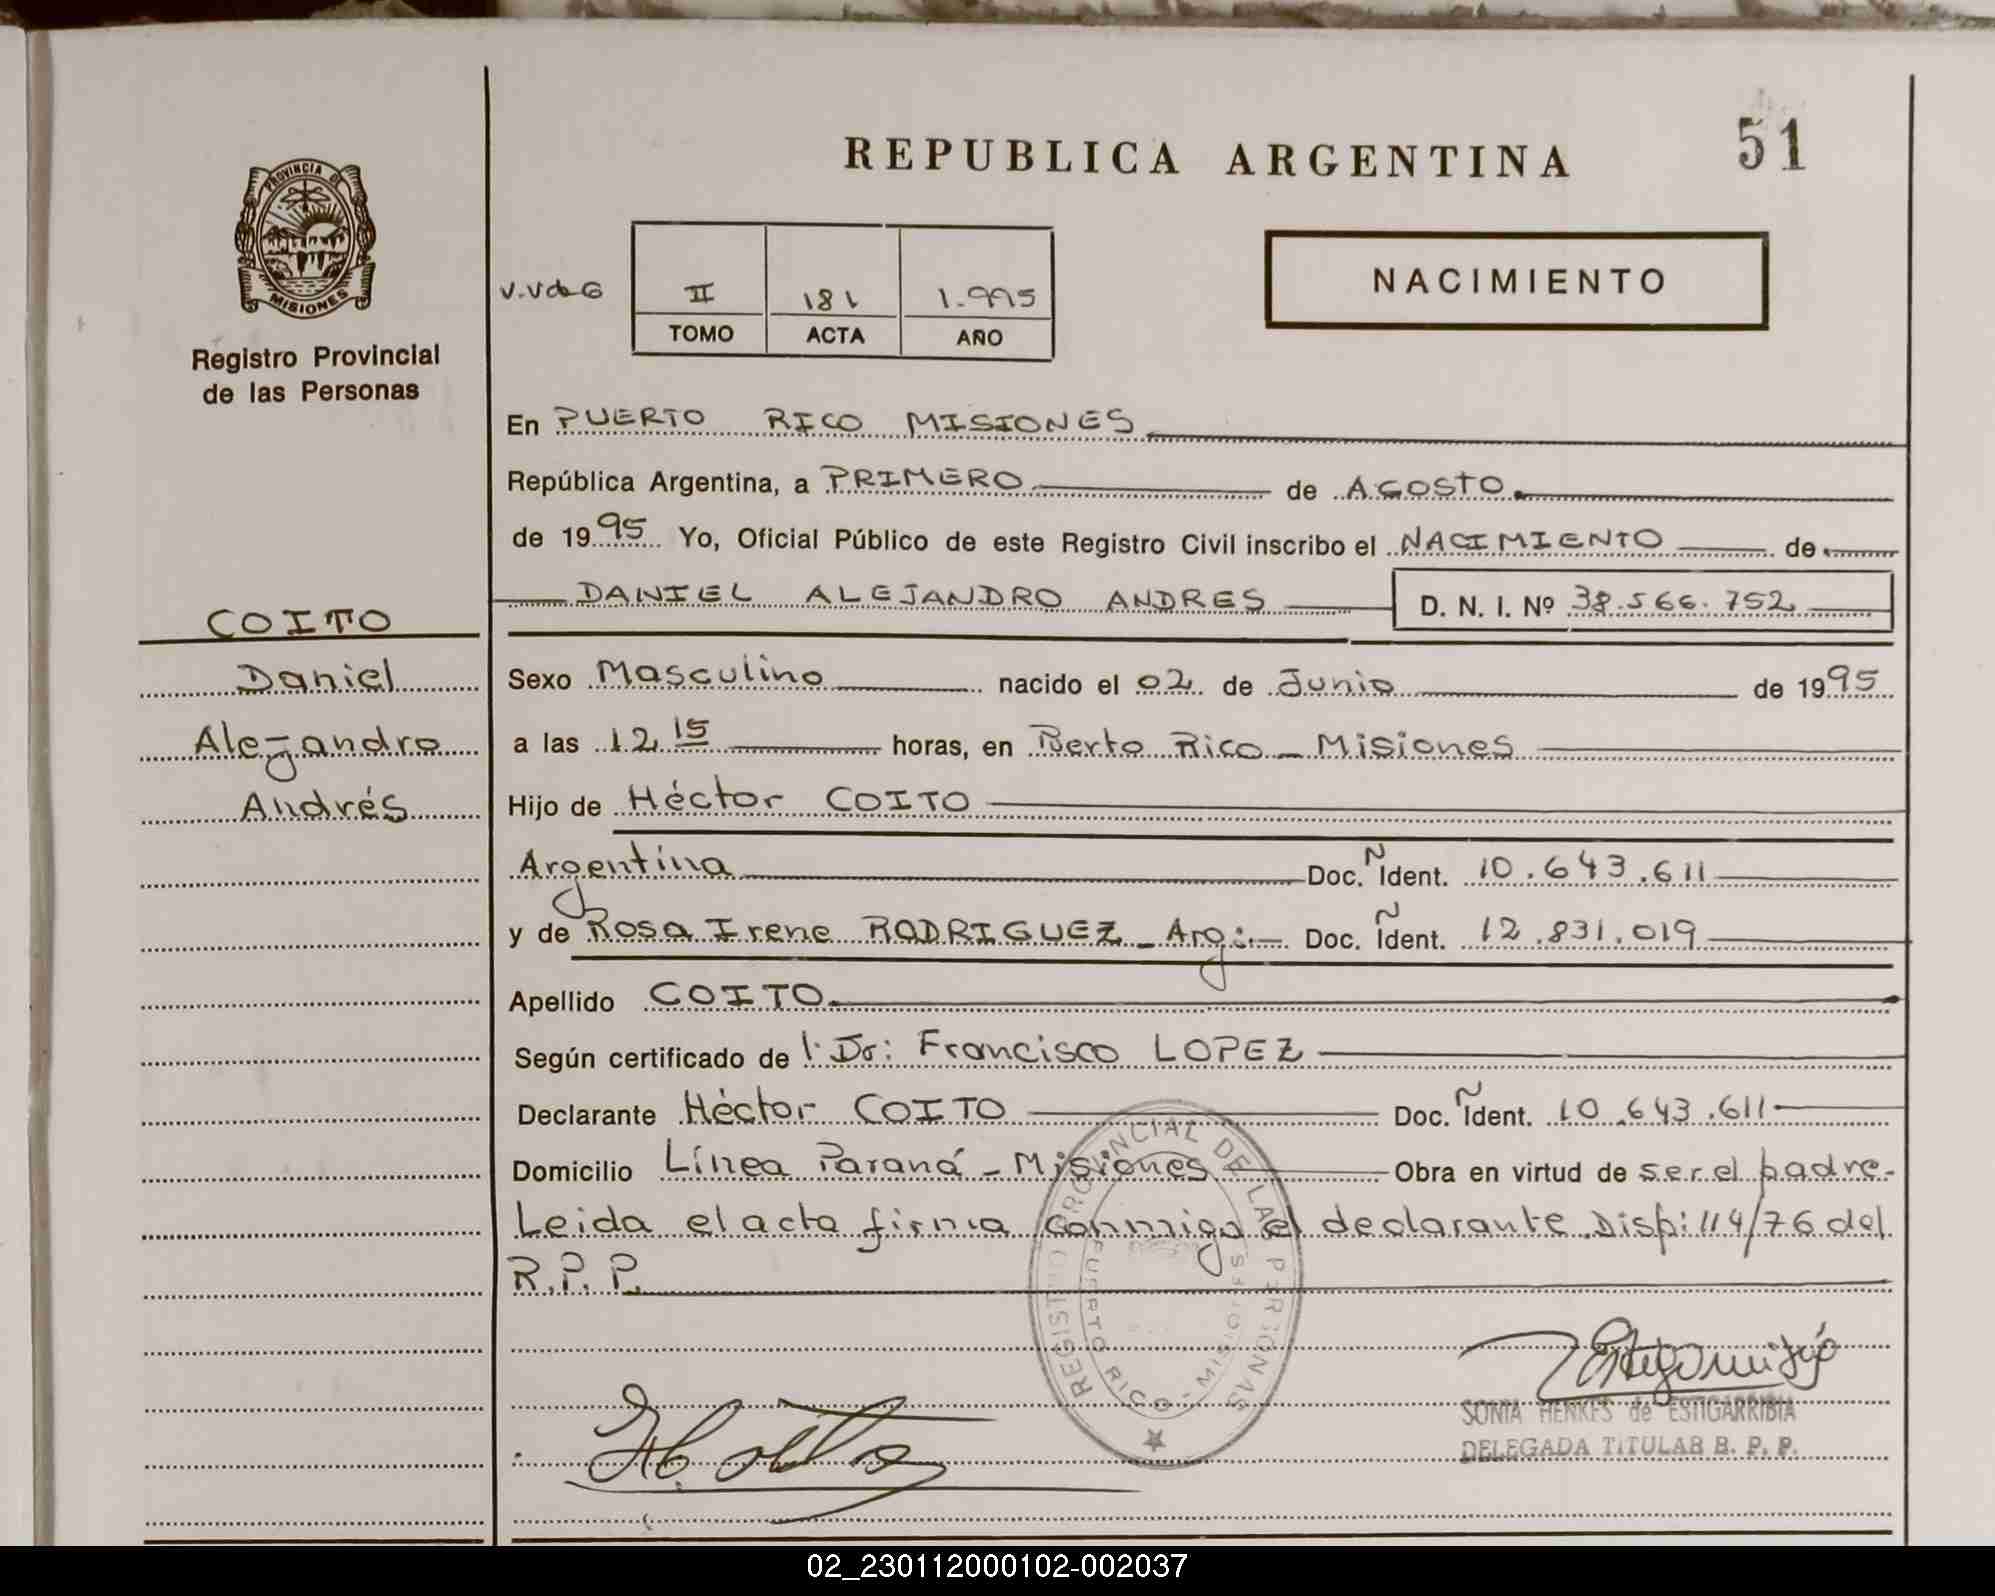 REPUBLICA ARGENTINA
51
PROVINCIA DE
MISIONES
Registro Provincial
de las Personas
V.V de G
II 181 1.995
TOMO ACTA AÑO
NACIMIENTO
En PUERTO RICO MISIONES
República Argentina, a PRIMERO de AGOSTO
de 1995 Yo, Oficial Público de este Registro Civil inscribo el NACIMIENTO de
DANIEL ALEJANDRO ANDRES D. N. I. Nº 38.566.752
COITO
Daniel
Alejandro
Andrés
Sexo Masculino nacido el 02 de Junio de 1995
a las 12 15 horas, en Perto Rico - Misiones
Hijo de Héctor COITO
Argentina Doc. Ñ Ident. 10.643.611
y de Rosa Irene RODRIGUEZ - Arg: Doc. Ñ Ident. 12.831.019
Apellido COITO.
Según certificado de l: Dr: Francisco LOPEZ
Declarante Héctor COITO Doc. Ñ Ident. 10.643.611
Domicilio Línea Paraná - Misiones Obra en virtud de ser el padre-
Leida el acta firma conmigo el declarante. Disp: 114/76 del
R.P.P.
REGISTRO PROVINCIAL DE LAS PERSONAS
PUERTO RICO - MISIONES
SONIA HENKES de ESTIGARRIBIA
DELEGADA TITULAR R. P. P.
02_230112000102-002037